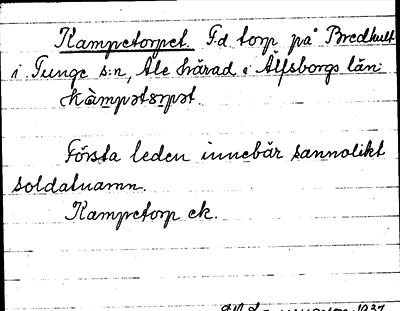 Kampetorpet. F.d. torp på Bredhult
i Tunge s:n, Ale härad i Älfsborgs län.
kàmpətɔrpət.
Första leden innebär sannolikt
soldatnamn.
Kampetorp ek.
1937